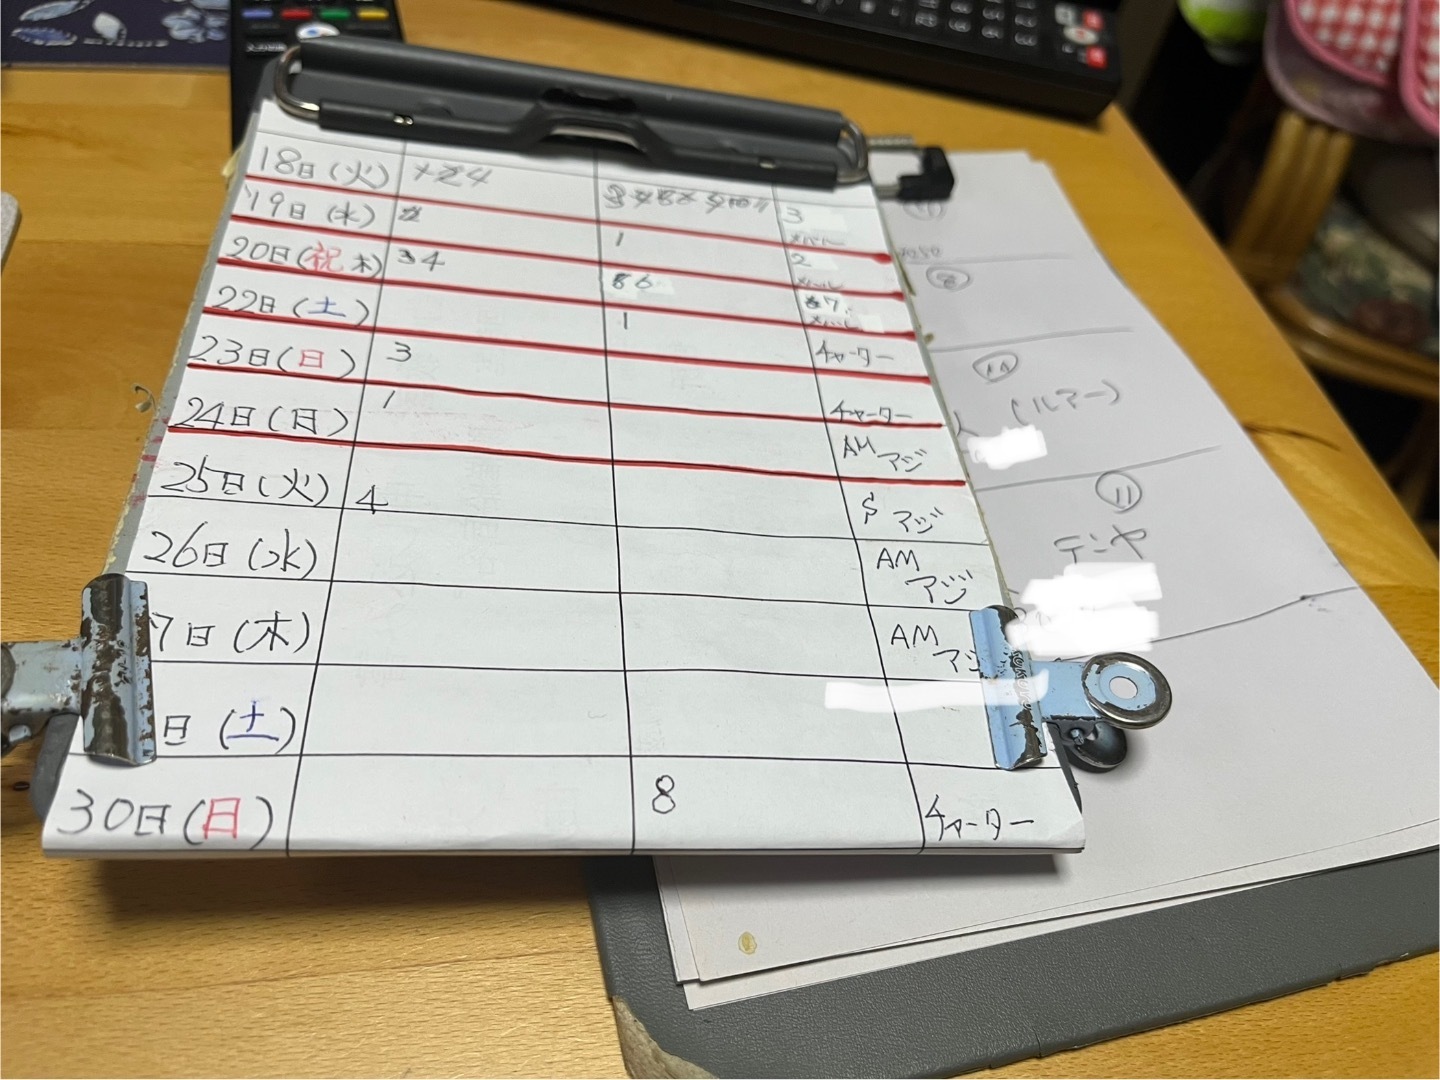 18日(火) 4
3
19日(水) 1
メバル
2
20日(祝 木) 34 86
メバル
7
22日(土) 1
メバル
23日(日) 3 チャーター
24日(日) 1 チャーター
AM アジ
25日(火) 4 アジ
26日(水) AM アジ
7日(木) AM アジ
日(土)
30日(日) 8 チャーター
8
(ルアー)
11
テンヤ